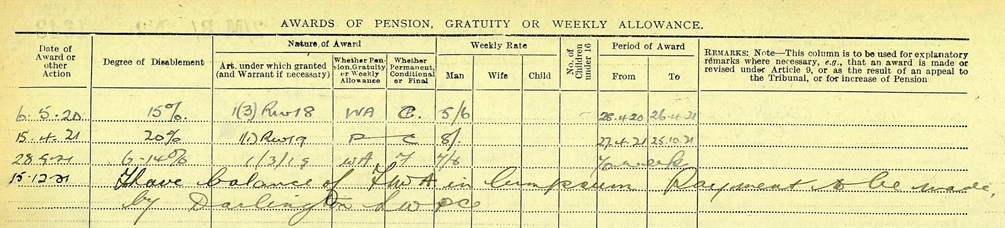 AWARDS OF PENSION, GRATUITY OR WEEKLY ALLOWANCE.
Date of Award or other Action
Degree of Disablement
Nature of Award
Art. under which granted (and Warrant if necessary)
Whether Pension, Gratuity or Weekly Allowance
Whether Permanent, Conditional or Final
Weekly Rate
Man Wife Child
No. of Children under 16
Period of Award
From To
REMARKS: Note—This column is to be used for explanatory remarks where necessary, e.g., that an award is made or revised under Article 9, or as the result of an appeal to the Tribunal, or for increase of Pension
6.5.20 15% 1(3) RW18 WA C. 5/6 28.4.20 26.4.21
15.4.21 20% 1(1) RW19 P C 8/- 27.4.21 25.10.21
28.9.21 6-14% 1/3/19 WA F 7/6
15.12.21 Have balance of FWA in lumpsum Payment to be made,
by Darlington